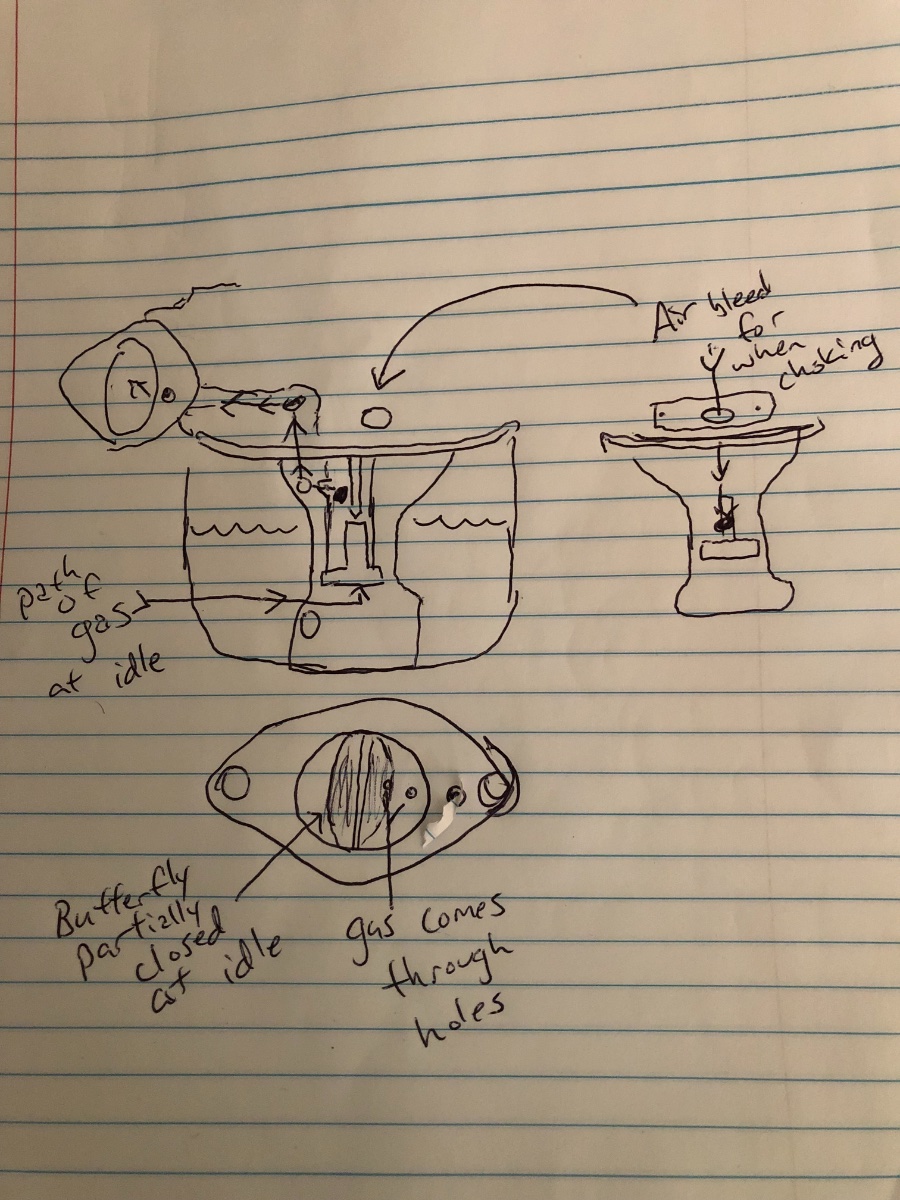 Air bleed
for
when
choking
path
of
gas
at idle
Butterfly
partially
closed
at idle
gas comes
through
holes